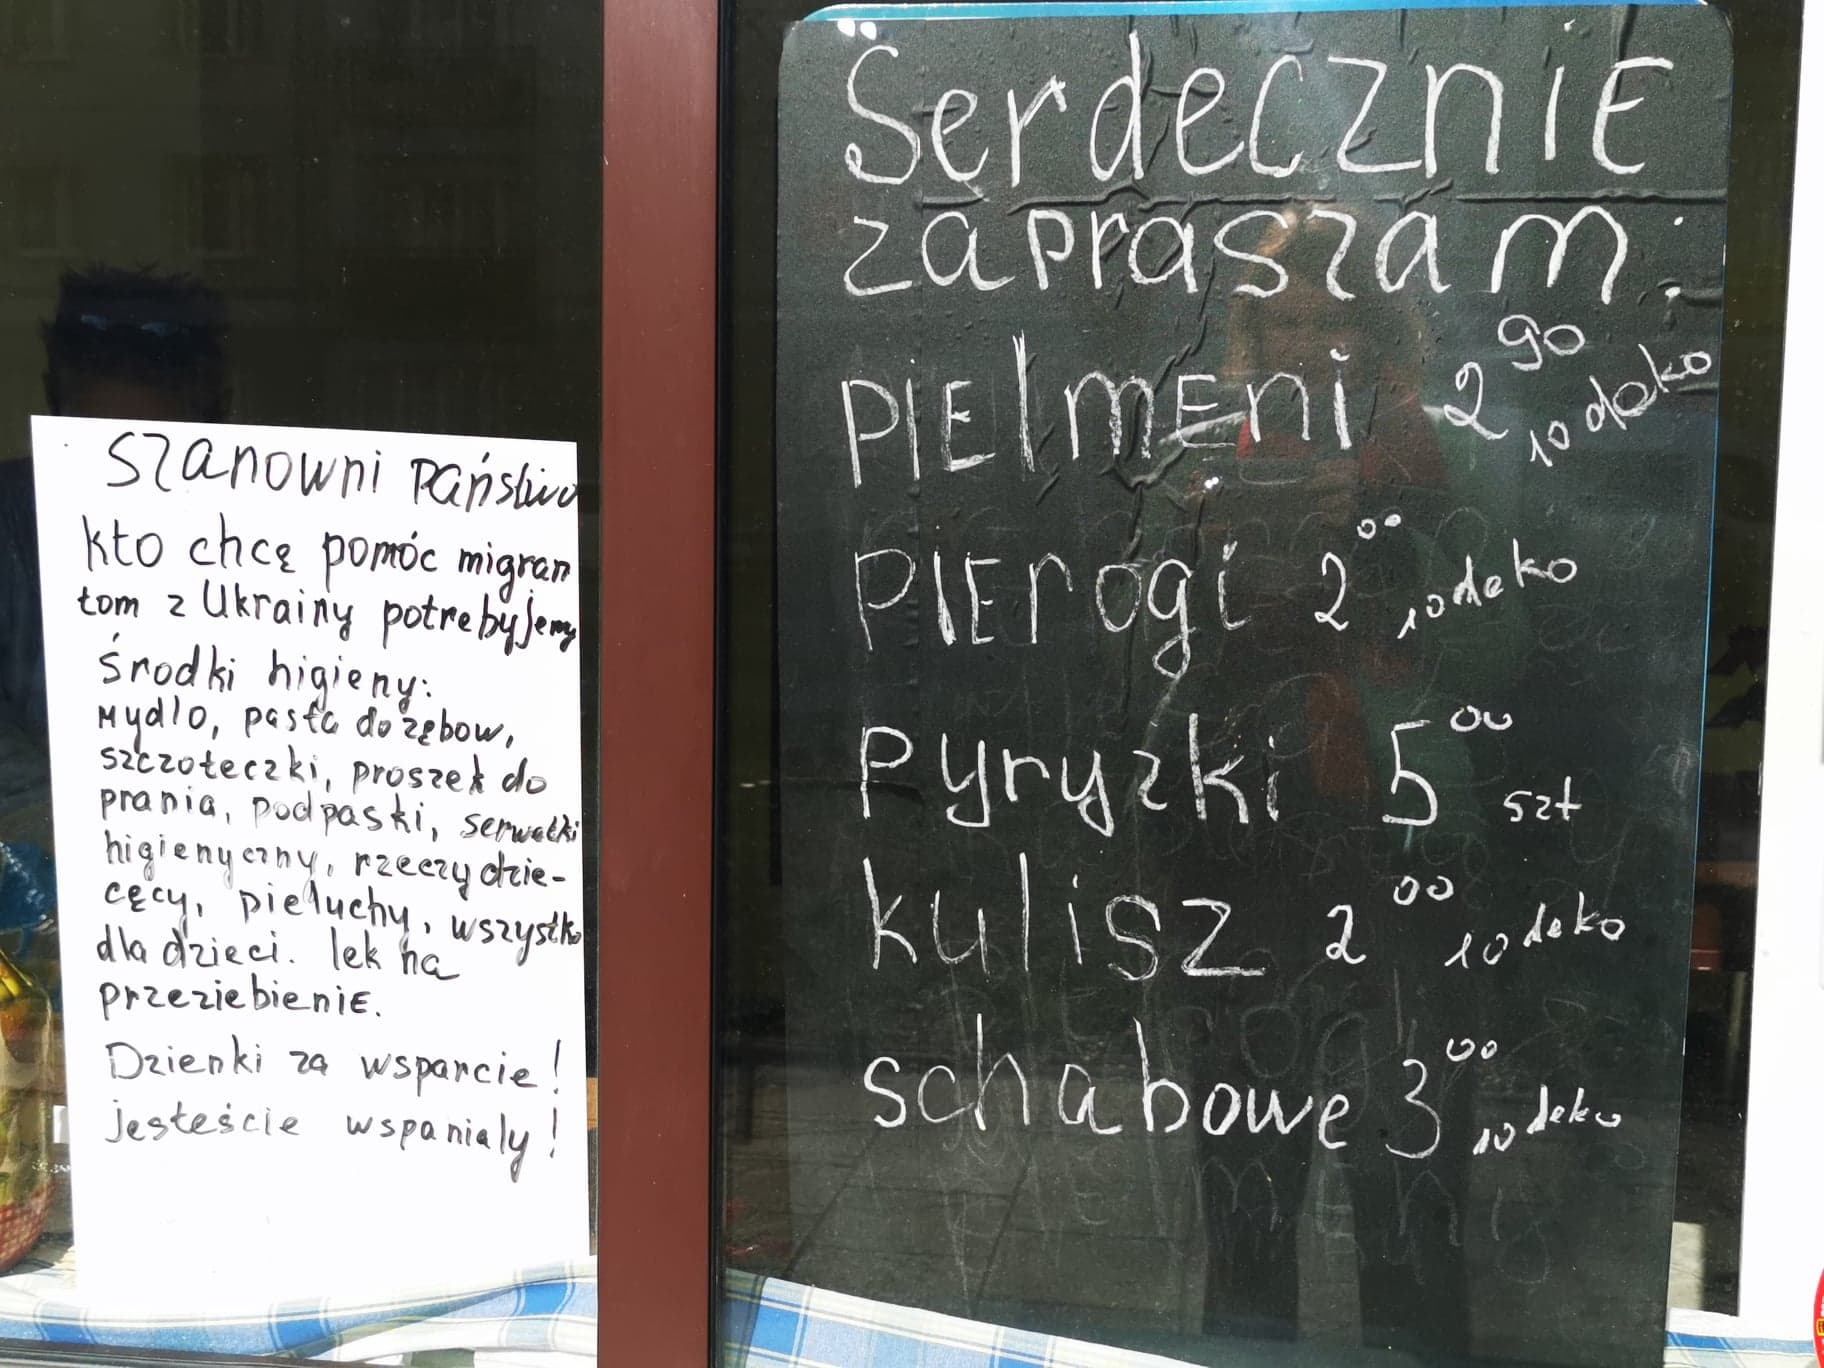 Szanowni Państwo
kto chcę pomóc migran
tom z Ukrainy potrebyjemy
środki higieny:
Mydlo, pasta do zębow,
szczoteczki, proszek do
prania, podpaski, serwetki
higienyczny, rzeczy dzie-
cęcy, pieluchy, wszystko
dla dzieci. lek na
przeziebieniE.
Dzienki za wsparcie!
jesteście wspanialy!
SerdeczniE
zapraszam:
PIElmEni 2 90 10 deko
PIErogi 2 00 10 deko
Pyryzki 5 00 szt
kulisz 2 00 10 deko
schabowe 3 00 10 deko